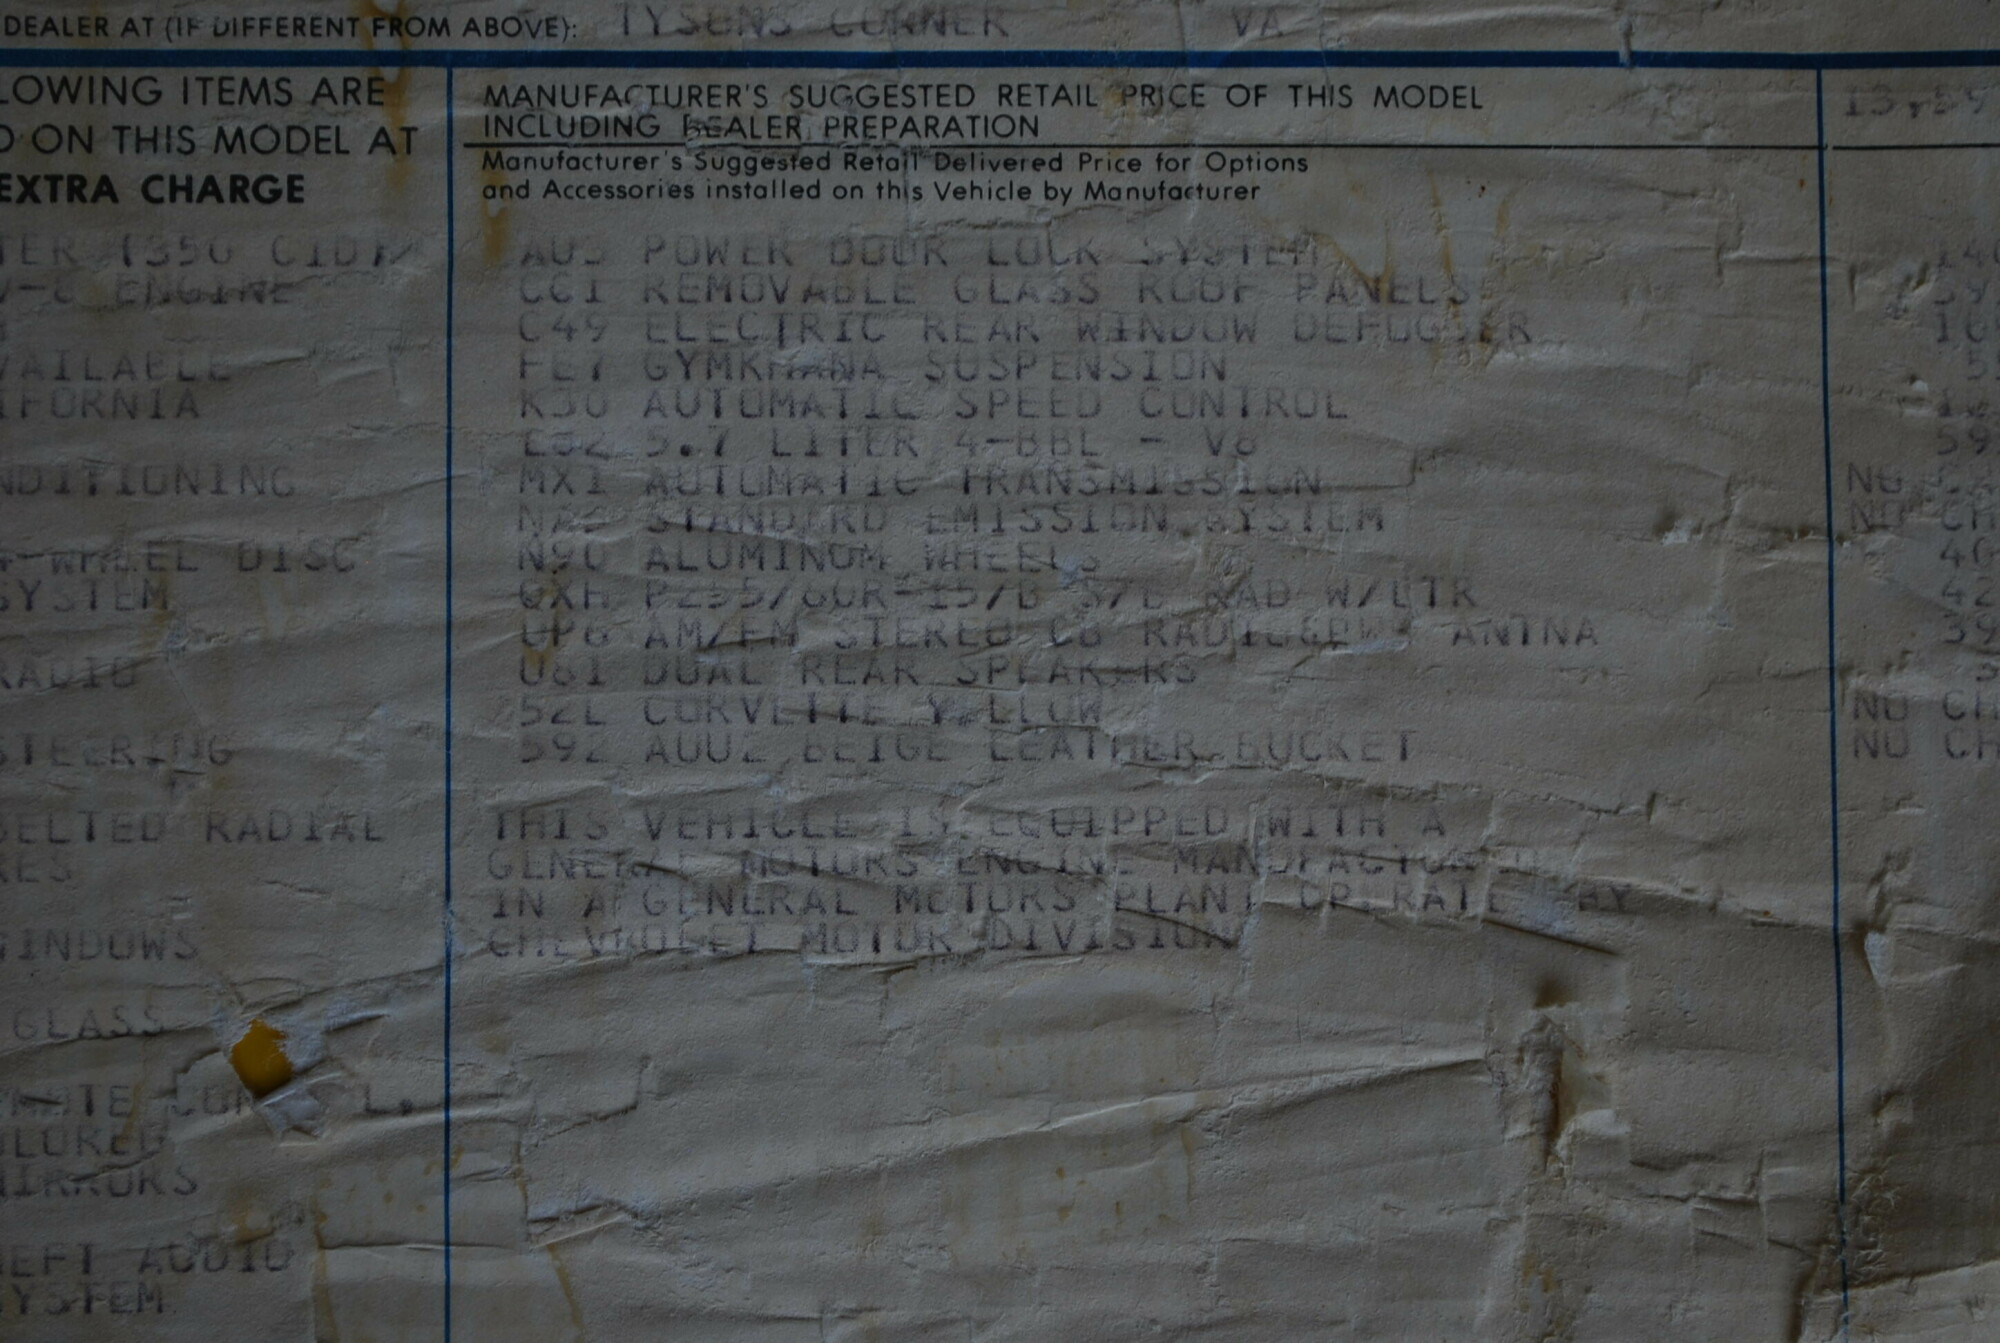 DEALER AT (IF DIFFERENT FROM ABOVE): TYSONS CORNER VA
LOWING ITEMS ARE
D ON THIS MODEL AT
EXTRA CHARGE
MANUFACTURER'S SUGGESTED RETAIL PRICE OF THIS MODEL
INCLUDING DEALER PREPARATION
13,59
Manufacturer's Suggested Retail Delivered Price for Options
and Accessories installed on this Vehicle by Manufacturer
TER (350 CID)
V-8 ENGINE
VAILABLE
IFORNIA
NDITIONING
4-WHEEL DISC
SYSTEM
RADIO
STEERING
BELTED RADIAL
RES
WINDOWS
GLASS
MOTE CON L.
OLORED
MIRRORS
HEFT AUDIO
SYSTEM
AU3 POWER DOOR LOCK SYSTEM 140
CC1 REMOVABLE GLASS ROOF PANELS 39
C49 ELECTRIC REAR WINDOW DEFOGGER 10
FE7 GYMKHANA SUSPENSION 5
K30 AUTOMATIC SPEED CONTROL
L82 5.7 LITER 4-BBL - V8 59
MX1 AUTOMATIC TRANSMISSION NO
NA5 STANDARD EMISSION SYSTEM NO CH
N90 ALUMINUM WHEELS 40
QXH P255/60R-15/B S/B RAD W/LTR 42
UP6 AM/FM STEREO CB RADIO&PWR ANTNA 39
U81 DUAL REAR SPEAKERS
52L CORVETTE YELLOW NO CH
592 A002 BEIGE LEATHER BUCKET NO CH
THIS VEHICLE IS EQUIPPED WITH A
GENERAL MOTORS ENGINE MANUFACTURED
IN A GENERAL MOTORS PLANT OPERATED BY
CHEVROLET MOTOR DIVISION